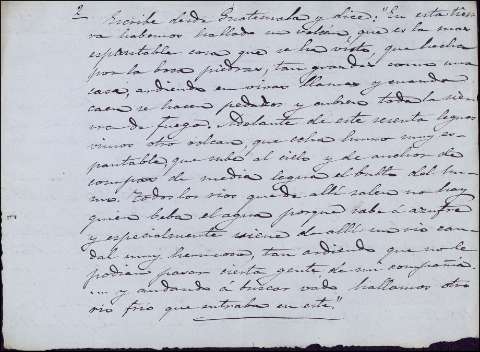 2
Escribe desde Guatemala y dice: "En esta tier-
ra habemos hallado un volcan, que es la mas
espantable cosa que se ha visto, que hecha
por la boca piedras, tan grandes como una
casa, ardiendo en vivas llamas y cuando
caen se hacen pedazos y cubren toda la sier-
ra de fuego. Adelante de este sesenta leguas
vimos otro volcan, que echa humo muy es-
pantable, que sube al cielo y de anchor de
compas de media legua el bulto del hu-
mo. Todos los rios que de allí salen no hay
quien beba el agua porque sabe á azufre
y especialmente viene de allí un rio cau-
dal muy hermoso, tan ardiendo que no le
podia pasar cierta gente, de mi compañia
.... y andando á buscar vado hallamos otro
rio frio que entraba en este."